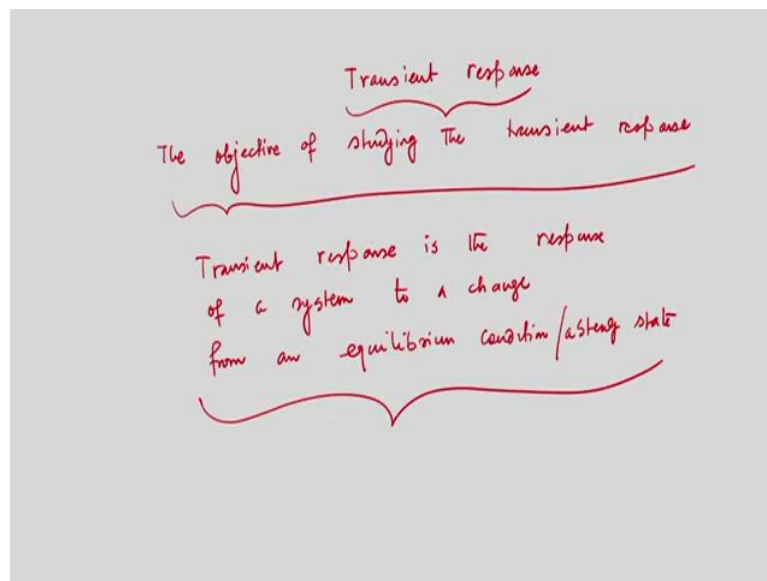 Transient response
The objective of studying the transient response
Transient response is the response
of a system to a change
from an equilibrium condition/a steady state